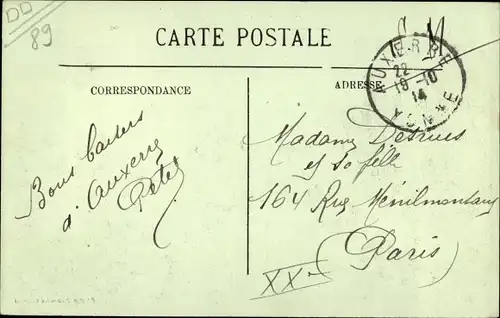 DD
89
C M
CARTE POSTALE
CORRESPONDANCE
ADRESSE
AUXERRE
22
19-10
14
YONNE
Bons baisers
d'Auxerre
Madame
et sa fille
164 Rue Ménilmontant
(Paris)
XXe